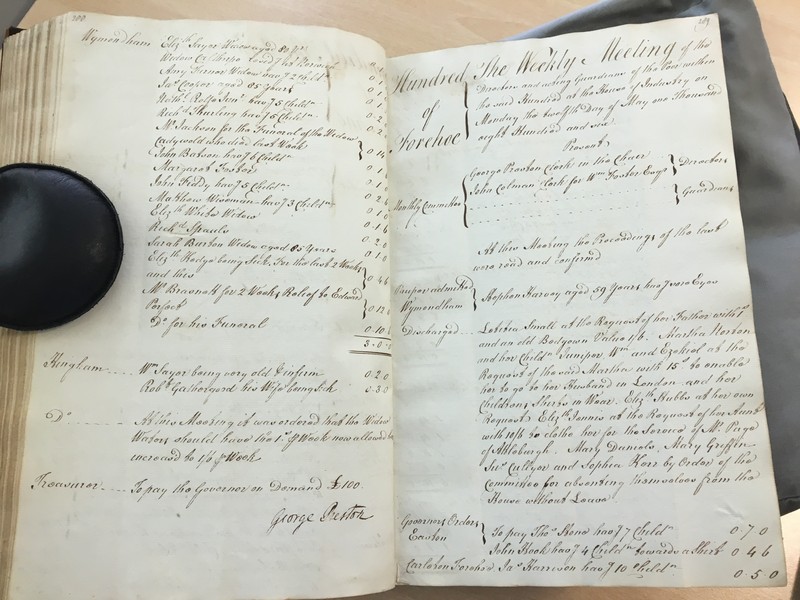 200
Wymondham Eliz.th Sayer Widow aged 80 y.rs
Widow
Amy Turner Widow hav.g 2 Child.n 0 1
Ja.s Cooper aged 85 years 0 1
Nath.l Rolfe Jun.r hav.g 5 Child.n 0 2
Rich.d Thurling hav.g 5 Child.n 0 2
M.r Jackson for the Funeral of the Widow
Ladywold who died last Week } 0 14
John Batson hav.g 6 Child.n 0 1
Margaret Foster 0 1
John Kiddy hav.g 5 Child.n 0 1
Matthew Wiseman hav.g 3 Child.n 0 2 6
Eliz.th White Widow 0 1 0
Rich.d Spauls 0 1 6
Sarah Burton Widow aged 85 Years 0 2 0
Eliz.th Hedge being Sick. For the last 2 Weeks
and this } 0 4 6
M.r Brasnett for 2 Weeks Relief to Edward
Perfect } 0 12
D.o for his Funeral 0 10
3 0
Hingham W.m Sayer being very old & infirm 0 2 0
Rob.t Gathergood his Wife being Sick 0 3 0
D.o At this Meeting it was ordered that the Widow
Waters should have the 1.s p Week now allowed her
increased to 1/6 p Week
Treasurer To pay the Governor on Demand £100
George Preston
201
Hundred of Forehoe } The Weekly Meeting of the
Directors and acting Guardians of the Poor within
the said Hundred at the House of Industry on
Monday the twelfth Day of May one Thousand
eight Hundred and six
Present
Monthly Committee { George Preston Clerk in the Chair
John Colman Clerk for W.m Foster Esq.r } Directors
} Guardians
At this Meeting the Proceedings of the last
were read and confirmed
Pauper admitted
Wymondham } Stephen Harvey aged 59 Years hav.g sore Eyes
Discharged Loberia Small at the Request of her Father with 1.s
and an old Bedgown Value 1/6. Martha Horton
and her Child.n Juniper, W.m and Ezekiel at the
Request of the said Martha with 15.s to enable
her to go to her Husband in London and her
Childrens Shirts in Wear. Eliz.th Stubbs at her own
Request. Eliz.th Jennis at the Request of her Aunt
with 10/6 to clothe her for the Service of M.r Page
of Attleburgh. Mary Daniels, Mary Griffin
Ja.s Cullyer and Sophia Kerr by Order of the
Committee for absenting themselves from the
House without Leave
Governors Orders
Easton } To pay Tho.s Bond hav.g 7 Child.n 0 7 0
John Hook hav.g 4 Child.n towards a Shirt 0 4 6
Carleton Forehoe Ja.s Harrison hav.g 10 Child.n 0 5 0